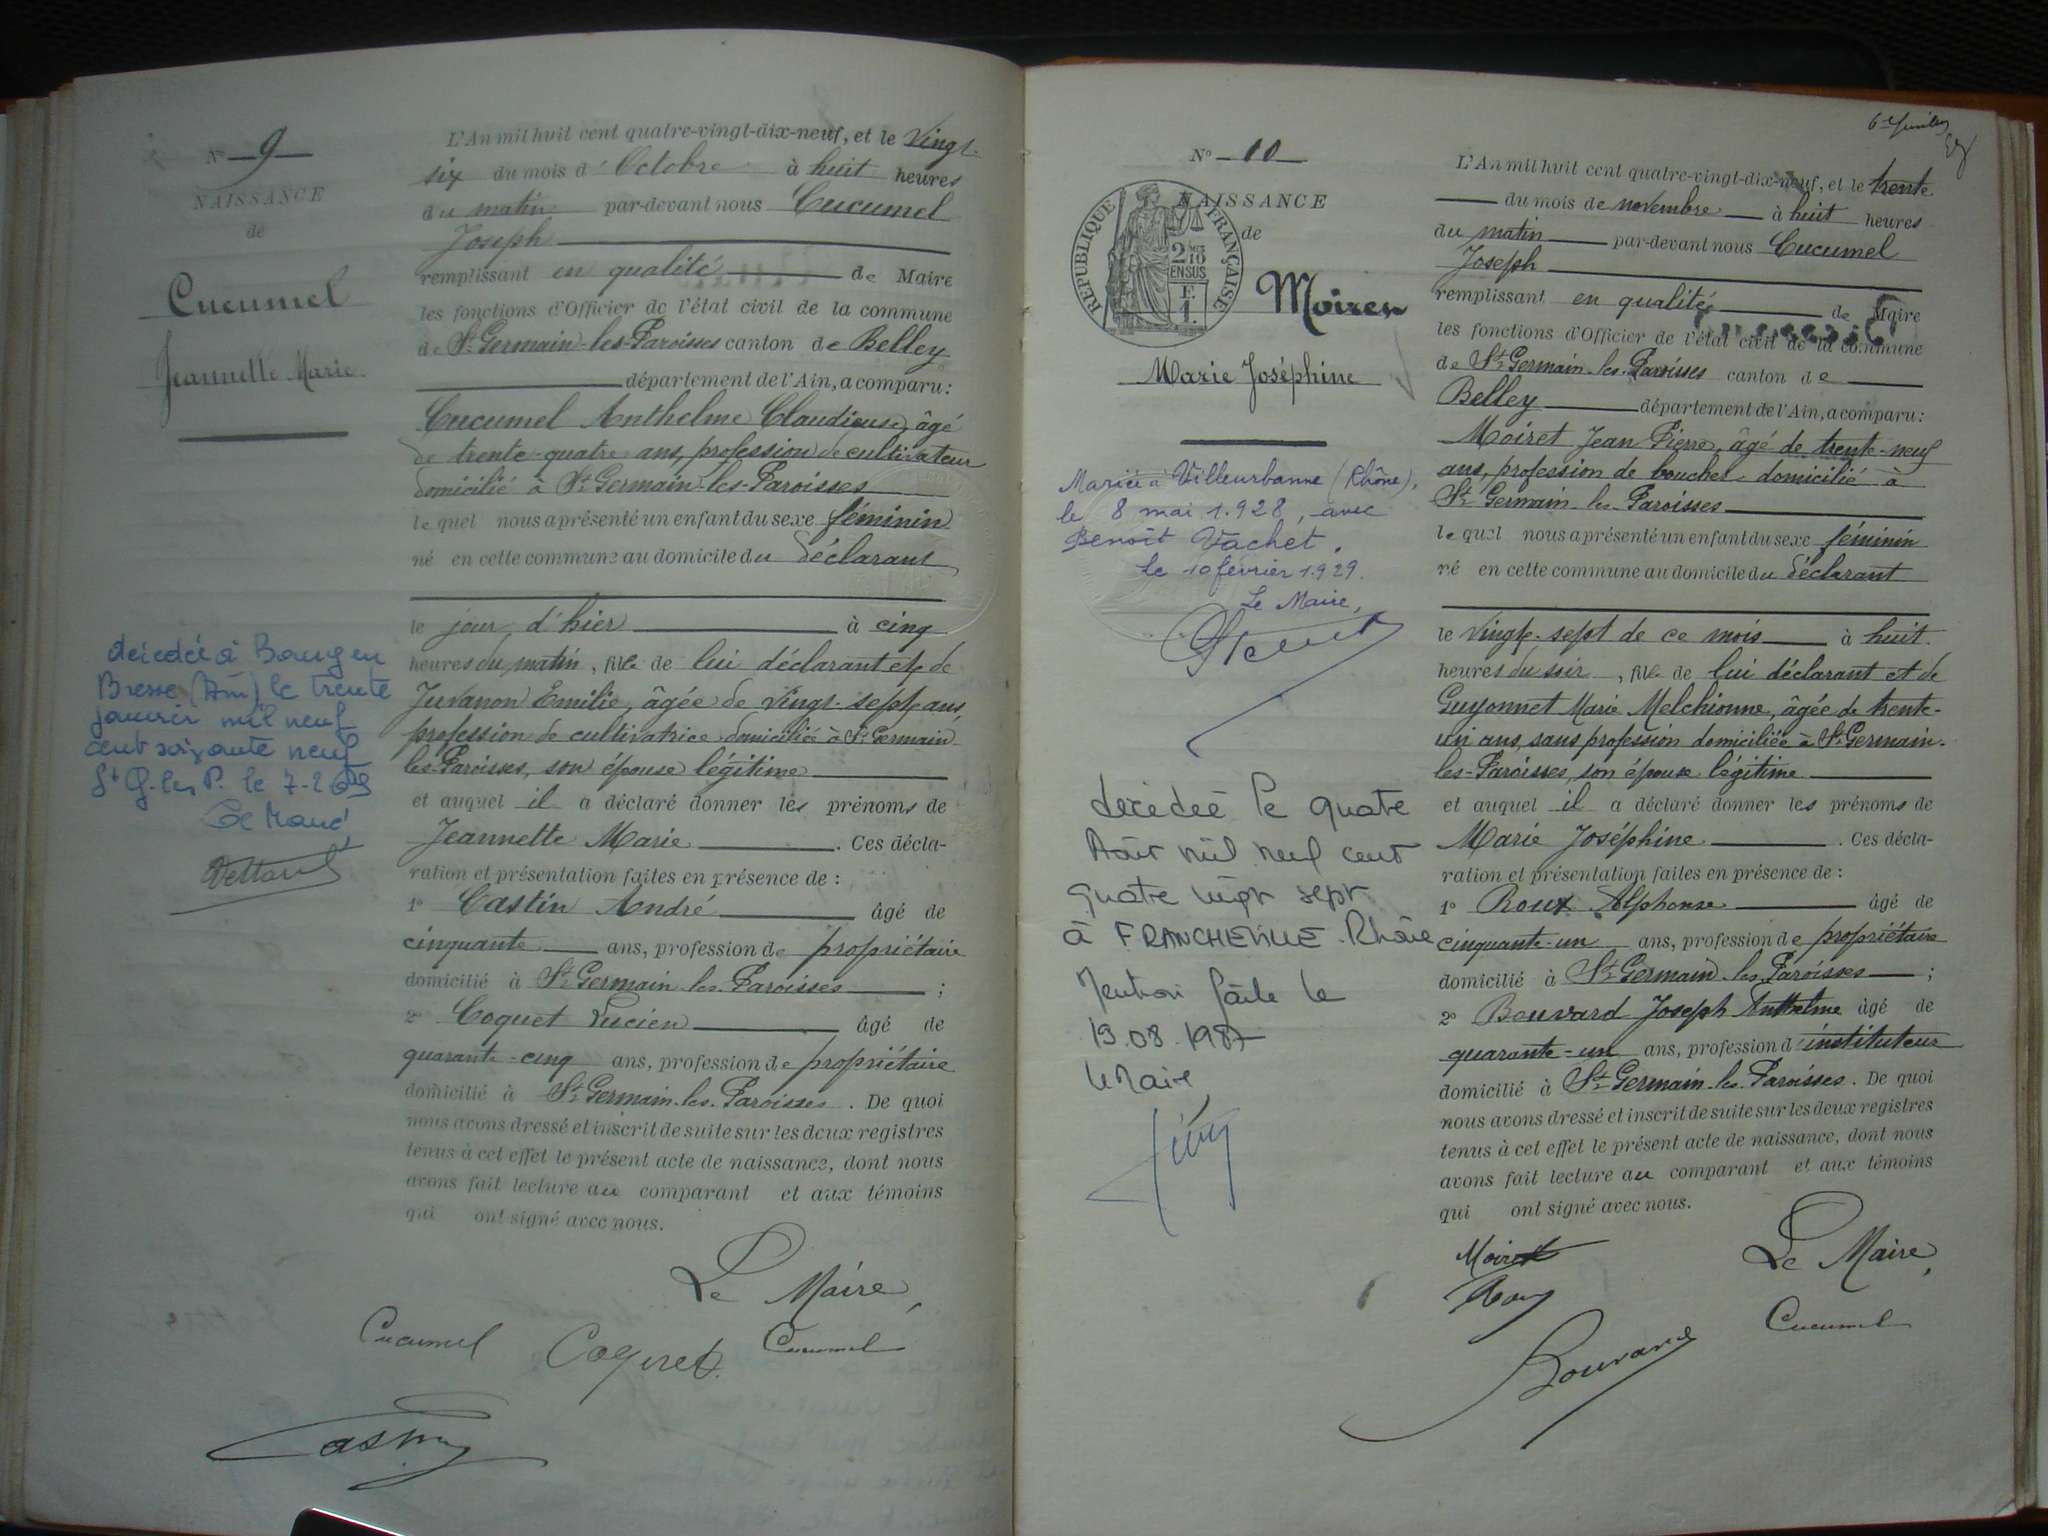 N° 9
NAISSANCE
de
Cucumel
Jeannette Marie
décédée à Bourg en
Bresse (Ain) le trente
janvier mil neuf
cent soixante neuf
St G. les P. le 7-2-69
Le Maire,
L'An mil huit cent quatre-vingt-dix-neuf, et le vingt-
six du mois d'Octobre à huit heures
du matin par-devant nous Cucumel
Joseph
remplissant en qualité de Maire
les fonctions d'Officier de l'état civil de la commune
de St Germain-les-Paroisses canton de Belley
département de l'Ain, a comparu:
Cucumel Anthelme Claudius, âgé
de trente-quatre ans, profession de cultivateur
domicilié à St Germain-les-Paroisses
lequel nous a présenté un enfant du sexe féminin
né en cette commune au domicile du déclarant
le jour d'hier à cinq
heures du matin, fille de lui déclarant et de
Juvanon Emilie, âgée de vingt-sept ans,
profession de cultivatrice domiciliée à St Germain-
les-Paroisses, son épouse légitime
et auquel il a déclaré donner les prénoms de
Jeannette Marie. Ces décla-
ration et présentation faites en présence de :
1° Castin André âgé de
cinquante ans, profession de propriétaire
domicilié à St Germain-les-Paroisses ;
2° Coquet Lucien âgé de
quarante-cinq ans, profession de propriétaire
domicilié à St Germain-les-Paroisses. De quoi
nous avons dressé et inscrit de suite sur les deux registres
tenus à cet effet le présent acte de naissance, dont nous
avons fait lecture au comparant et aux témoins
qui ont signé avec nous.
Le Maire,
Cucumel Coquet Cucumel
Castin
6e feuillet
N° 10
NAISSANCE
de
REPUBLIQUE FRANÇAISE
2/10 EN SUS
F.
1.
Moiret
Marie Joséphine
Mariée à Villeurbanne (Rhône),
le 8 mai 1.928, avec
Benoît Vachet.
Le 10 février 1.929.
Le Maire,
décédée le quatre
Août mil neuf cent
quatre vingt sept
à FRANCHEVILLE. Rhône
Mention faite le
19.08.1987
Le Maire
L'An mil huit cent quatre-vingt-dix-neuf, et le trente
du mois de novembre à huit heures
du matin par-devant nous Cucumel
Joseph
remplissant en qualité de Maire
les fonctions d'Officier de l'état civil de la commune
de St Germain-les-Paroisses canton de
Belley département de l'Ain, a comparu:
Moiret Jean Pierre, âgé de trente-neuf
ans, profession de boucher domicilié à
St Germain-les-Paroisses
lequel nous a présenté un enfant du sexe féminin
né en cette commune au domicile du déclarant
le vingt-sept de ce mois à huit
heures du soir, fille de lui déclarant et de
Guyonnet Marie Melchionne, âgée de trente-
un ans, sans profession domiciliée à St Germain-
les-Paroisses, son épouse légitime
et auquel il a déclaré donner les prénoms de
Marie Joséphine. Ces décla-
ration et présentation faites en présence de :
1° Roux Alphonse âgé de
cinquante-un ans, profession de propriétaire
domicilié à St Germain-les-Paroisses ;
2° Bouvard Joseph Anthelme âgé de
quarante-un ans, profession d'instituteur
domicilié à St Germain-les-Paroisses. De quoi
nous avons dressé et inscrit de suite sur les deux registres
tenus à cet effet le présent acte de naissance, dont nous
avons fait lecture au comparant et aux témoins
qui ont signé avec nous.
Moiret Le Maire,
Roux
Cucumel
Bouvard